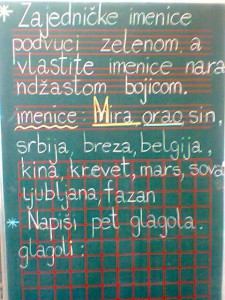 * Zajedničke imenice
podvuci zelenom, a
vlastite imenice nara
ndžastom bojicom.
imenice: Mira, orao, sin,
srbija, breza, belgija,
kina, krevet, mars, sova
ljubljana, fazan
* Napiši pet glagola.
glagoli: